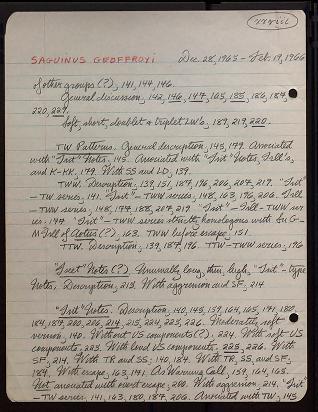 xxviii
SAGUINUS GEOFFROYI Dec. 28, 1965 – Feb. 19, 1966
of other groups (?), 141, 144, 146.
General discussion, 142, 146, 147, 165, 185, 186, 187,
220, 227.
Soft, short, doublet & triplet LW's, 189, 219, 220.
TW Patterns. General description, 145, 179. Associated
with "Trit" Notes, 145. Associated with "Trit" Notes, Trill's,
and K-KK, 179. With SS and LD, 139.
TWW. Description, 139, 151, 187, 196, 206, 207, 219. "Trit"
– TW series, 141. "Trit" – TWW series, 148, 163, 196, 206. Trill
– TWW series, 148, 177, 188, 207, 219. "Trit" – Trill – TWW ser-
ies, 147. "Trit" – TWW series strictly homologous with G-
M Trill of Aotes (?), 163. TWW before escape, 151.
TTW. Description, 139, 187, 196. TTW – TWW series, 196
Notes (?). Unusually long, thin, high, "Trit"-type
Notes, Description, 213. With aggression and SF, 214
"Trit" Notes. Description, 140, 145, 159, 164, 165, 171, 180,
184, 187, 200, 206, 214, 215, 224, 225, 226. Moderately soft
version, 140. Without US components (?), 224. With soft US
components, 223. With loud US components, 225, 226. With
SF, 214. With TR and SS, 140, 184. With TR, SS, and SF,
184. With escape, 163, 171. As Warning Call, 159, 164, 165.
Not associated with overt escape, 200. With aggression, 214. "Trit"
– TW series, 141, 163, 180, 187, 206. Associated with TW, 145